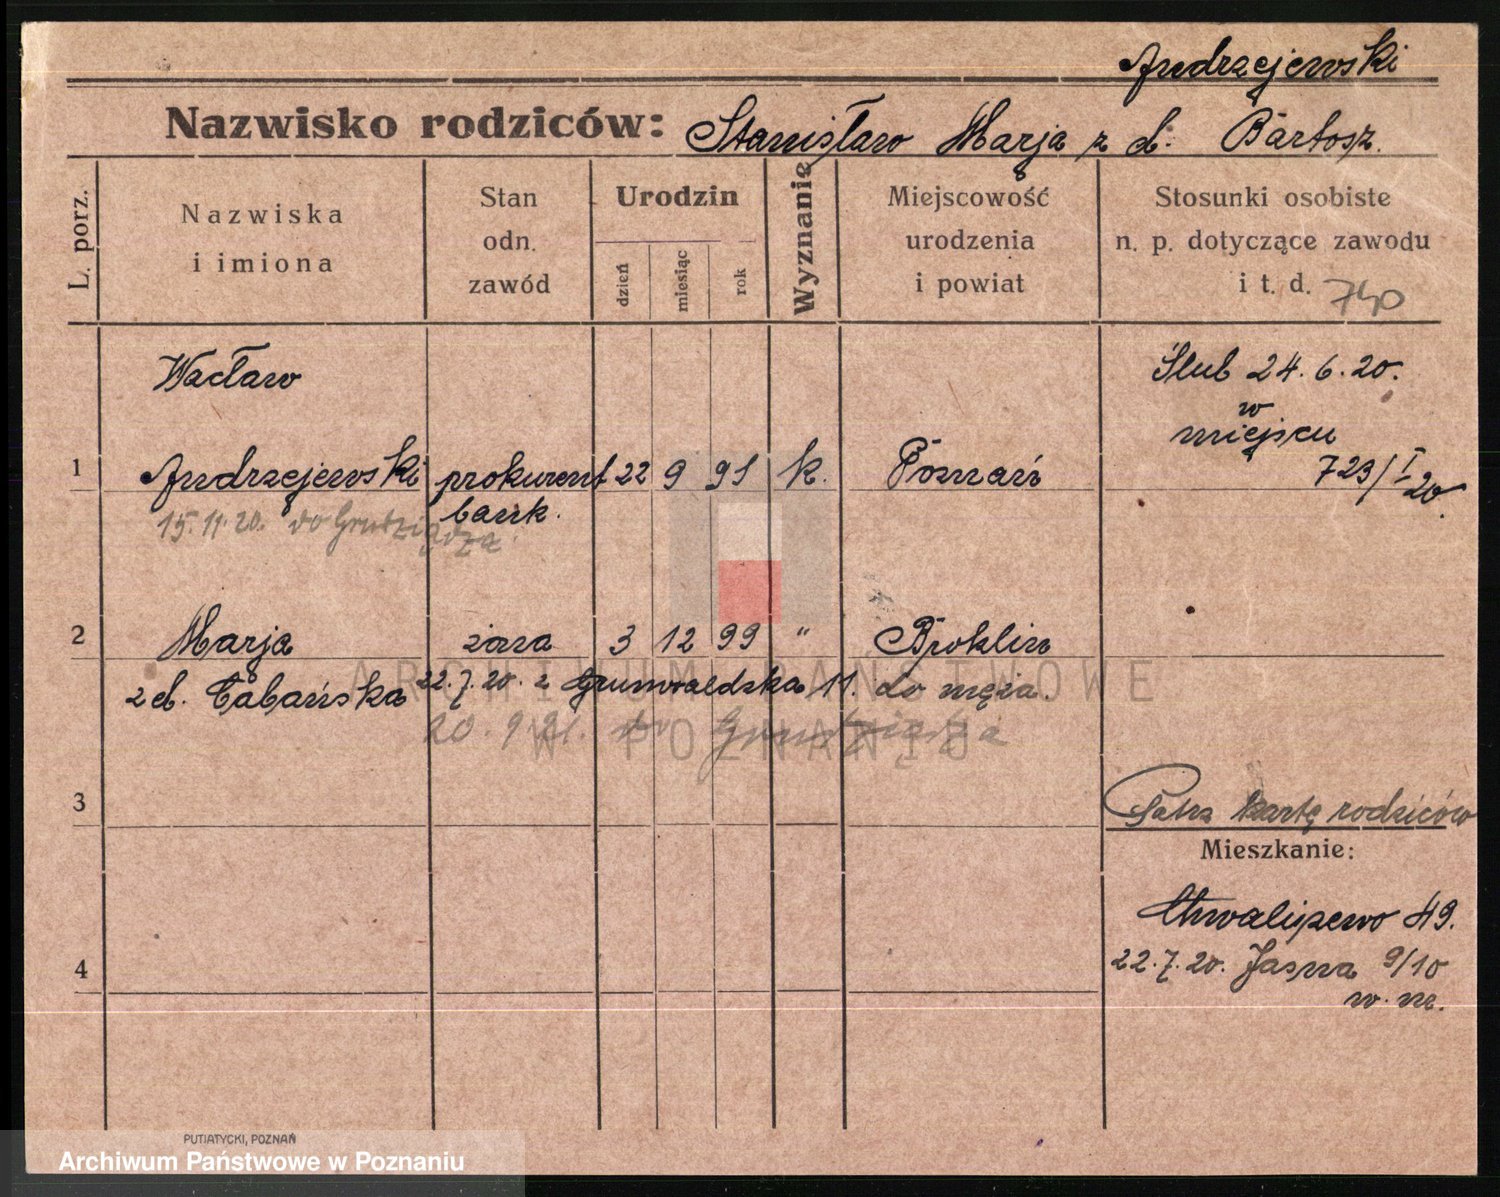 Andrzejewski
Nazwisko rodziców: Stanisław Marja z d. Bartosz.
L. porz.
Nazwiska
i imiona
Stan
odn.
zawód
Urodzin
dzień
miesiąc
rok
Wyznanie
Miejscowość
urodzenia
i powiat
Stosunki osobiste
n. p. dotyczące zawodu
i t. d.
740
Wacław
Ślub 24.6.20.
w
miejscu
1 Andrzejewski prokurent 22 9 91 k. Poznań
729/I 20.
bank.
15.11.20. do Grudziądza
2 Marja żona 3 12 99 " Broklin
z d. Cabańska 22.7.20. z Grunwaldzka 11. do męża.
20.9.21. do Grudziądza
3
Patrz kartę rodziców
Mieszkanie:
Chwaliszewo 49.
4
22.7.20. Jasna 9/10
w. m.
ARCHIWUM PAŃSTWOWE
W POZNANIU
PUTIATYCKI, POZNAŃ
Archiwum Państwowe w Poznaniu